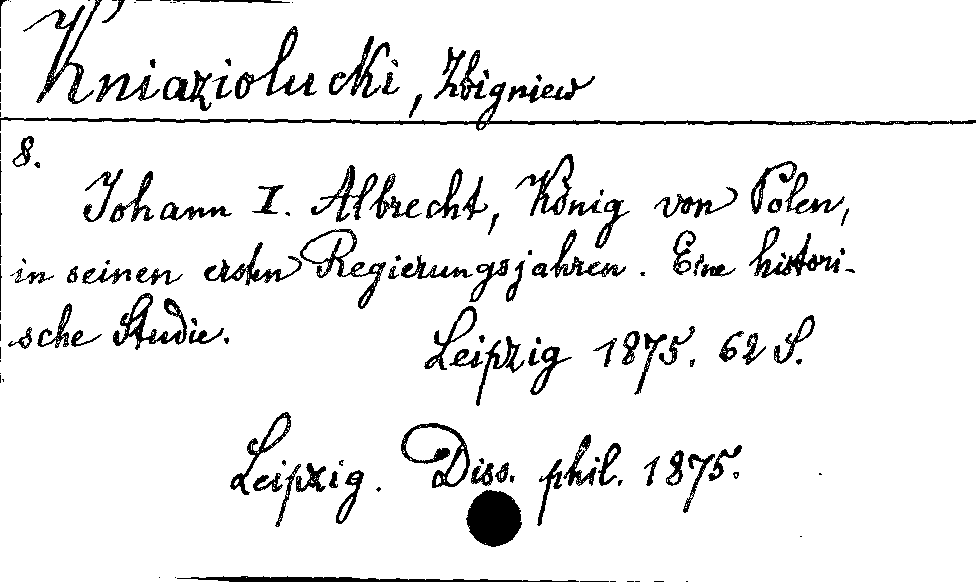 Kniaziolucki, Zbigniew
8.
Johann I. Albrecht, König von Polen,
in seinen ersten Regierungsjahren. Eine histori-
sche Studie.
Leipzig 1875. 62 S.
Leipzig. Diss. phil. 1875.